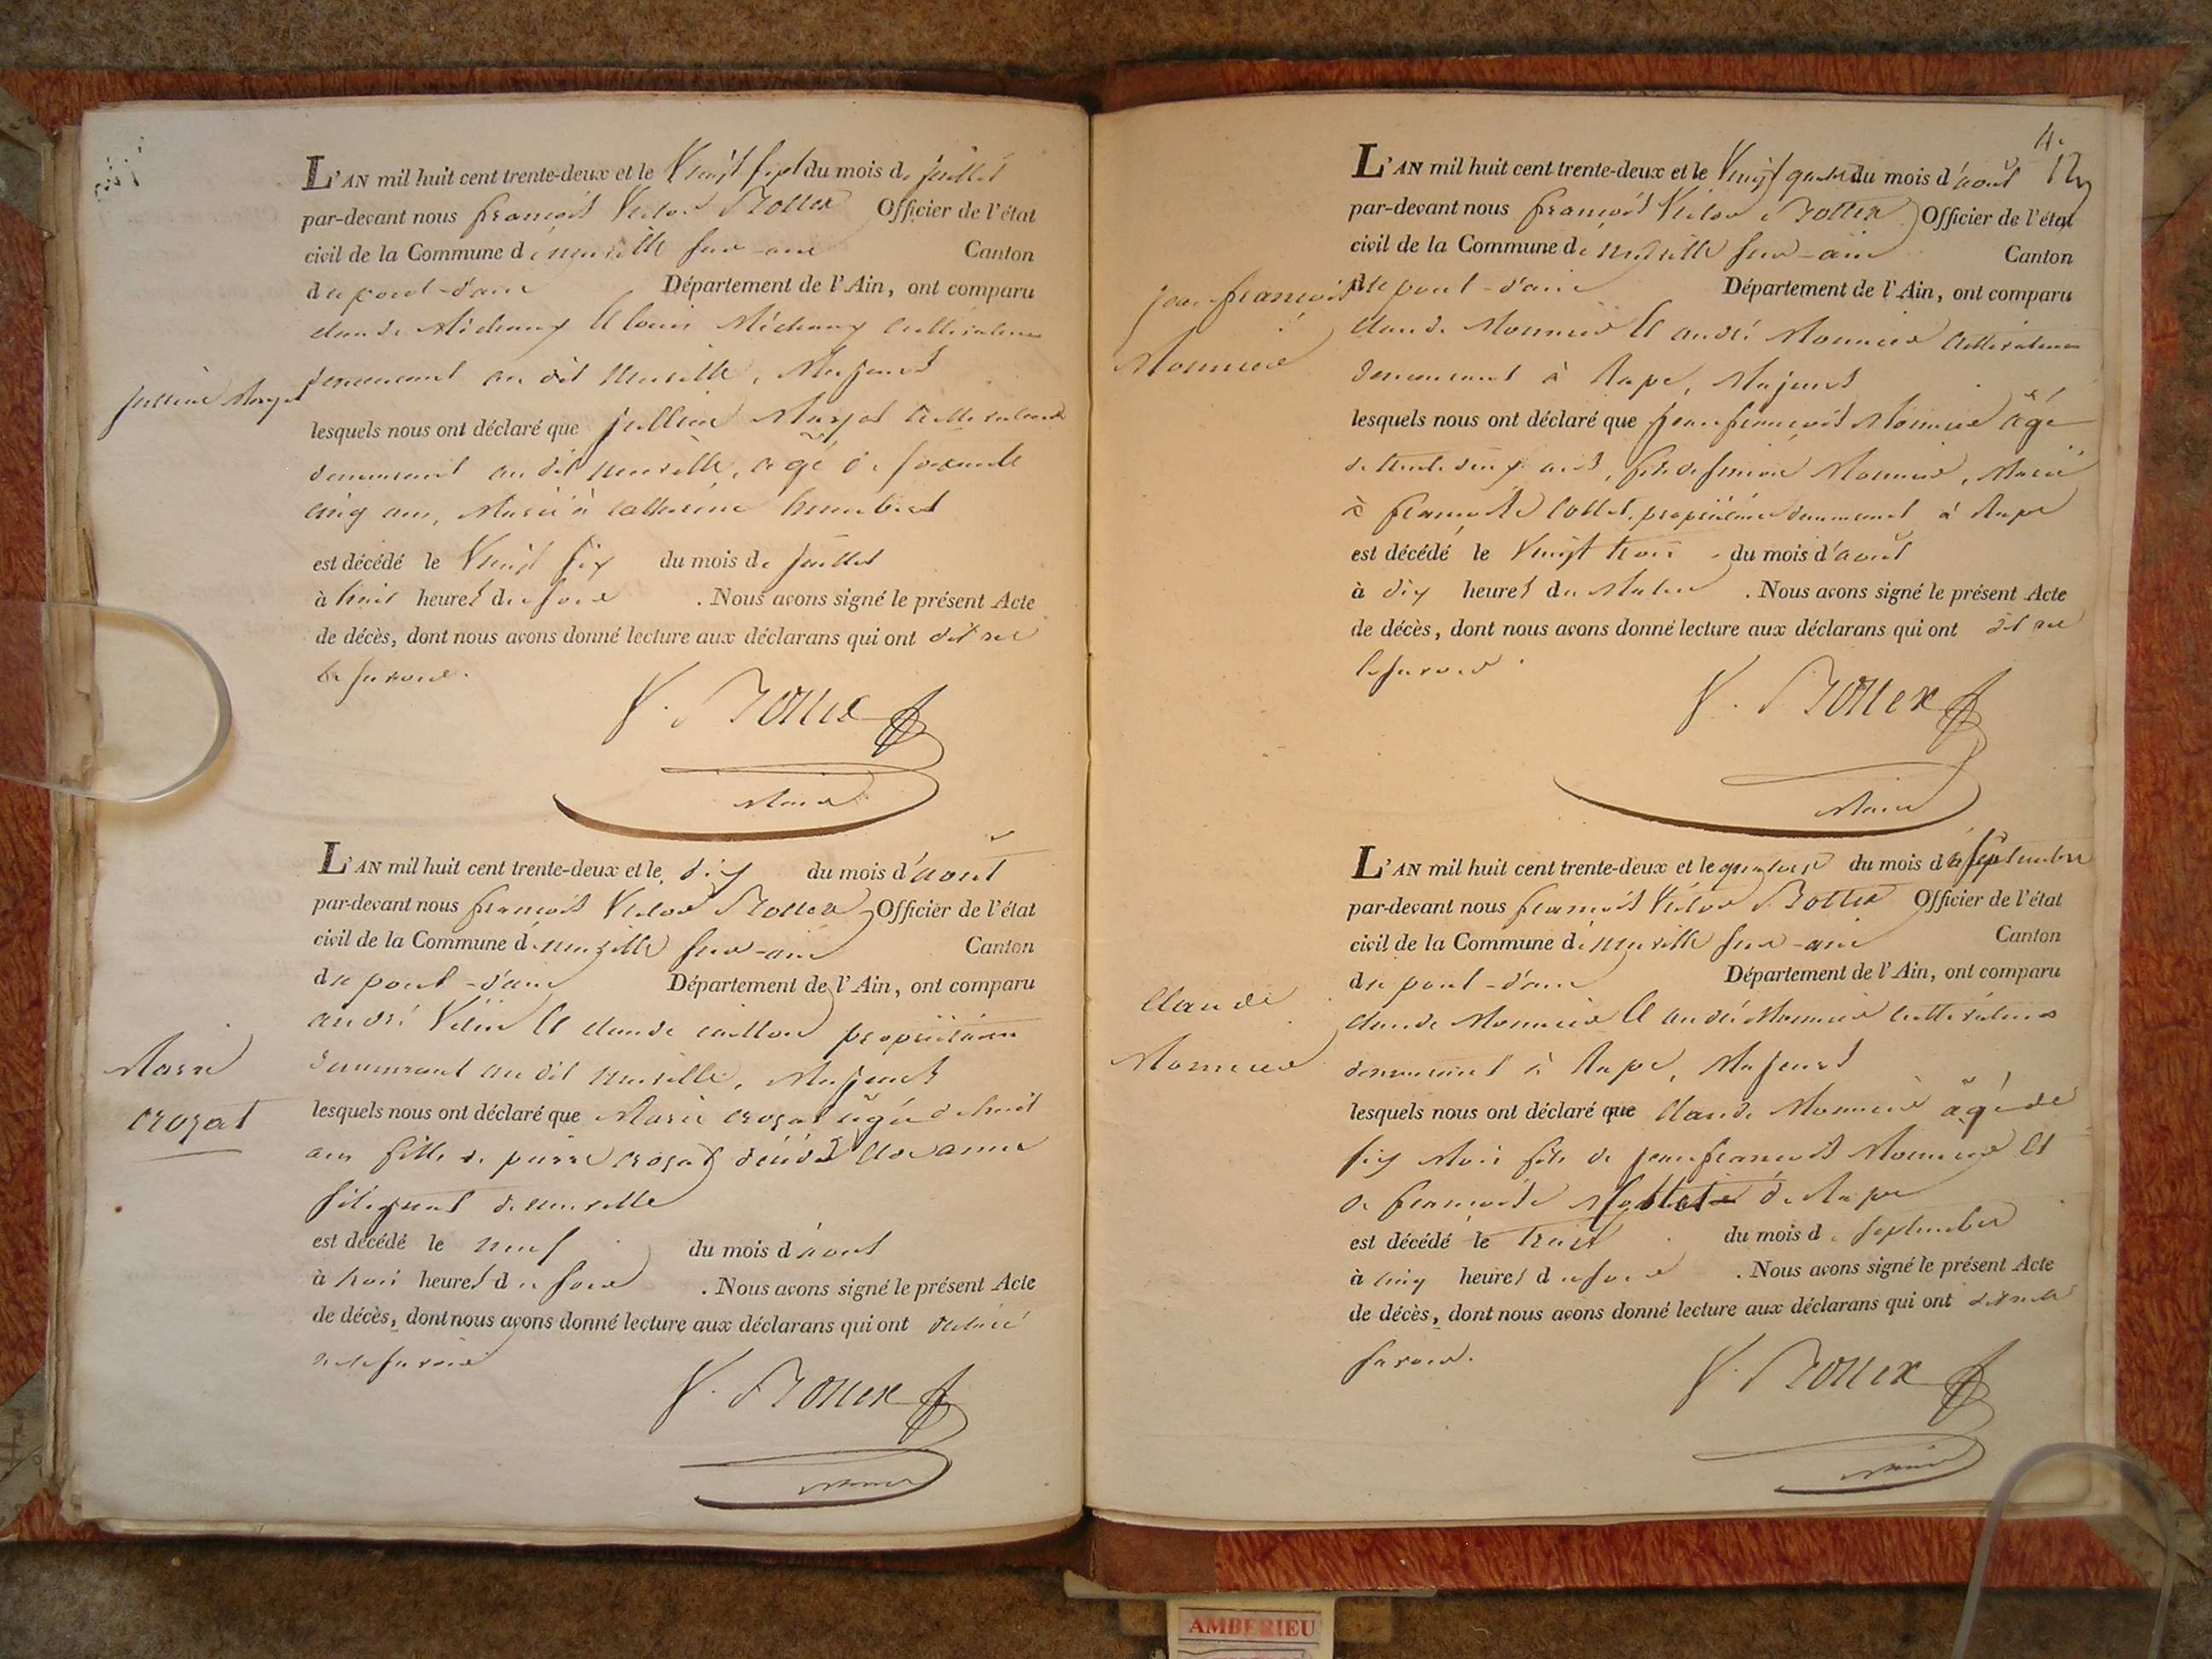 L'AN mil huit cent trente-deux et le Vingt sept du mois de juillet
par-devant nous françois Victor Officier de l'état
civil de la Commune de neuville sur-ain Canton
du pont-d'ain Département de l'Ain, ont comparu
claude Michaux et louis Michaux cultivateurs
demeurant au dit neuville, Majeurs
jullien
lesquels nous ont déclaré que jullien cultivateur
demeurant au dit neuville, agé de soixante
cinq ans, Marié à catherine humbert
est décédé le Vingt six du mois de juillet
à huit heures du soir . Nous avons signé le présent Acte
de décès, dont nous avons donné lecture aux déclarans qui ont dit ne
le savoir.
Maire
L'AN mil huit cent trente-deux et le dix du mois d'août
par-devant nous françois Victor Officier de l'état
civil de la Commune de neuville sur-ain Canton
du pont-d'ain Département de l'Ain, ont comparu
andré et claude propriétaires
demeurant au dit neuville, Majeurs
Marie
crozat
lesquels nous ont déclaré que Marie crozat agée de huit
ans fille de pierre crozat décédé et de anne
de neuville
est décédé le neuf du mois d'aout
à trois heures du soir . Nous avons signé le présent Acte
de décès, dont nous avons donné lecture aux déclarans qui ont déclaré
ne le savoir
Maire
4.
L'AN mil huit cent trente-deux et le Vingt quatre du mois d'août
par-devant nous françois Victor Officier de l'état
civil de la Commune de neuville sur-ain Canton
du pont-d'ain Département de l'Ain, ont comparu
jean françois
Monnier
claude Monnier et andré Monnier cultivateurs
demeurant à Rape, Majeurs
lesquels nous ont déclaré que jean françois Monnier âgé
de trente deux ans, fils de Monnier, Marié
à françoise collet, propriétaire demeurant à Rape
est décédé le Vingt trois du mois d'août
à dix heures du Matin . Nous avons signé le présent Acte
de décès, dont nous avons donné lecture aux déclarans qui ont dit ne
le savoir.
Maire
L'AN mil huit cent trente-deux et le quatorze du mois de septembre
par-devant nous françois Victor Officier de l'état
civil de la Commune de neuville sur-ain Canton
du pont-d'ain Département de l'Ain, ont comparu
Claude
Monnier
claude Monnier et andré Monnier cultivateurs
demeurant à Rape, Majeurs
lesquels nous ont déclaré que claude Monnier âgé de
six Mois fils de jean françois Monnier et
de françoise de Rape
est décédé le treize du mois de septembre
à cinq heures du soir . Nous avons signé le présent Acte
de décès, dont nous avons donné lecture aux déclarans qui ont dit ne le
savoir.
Maire
AMBERIEU